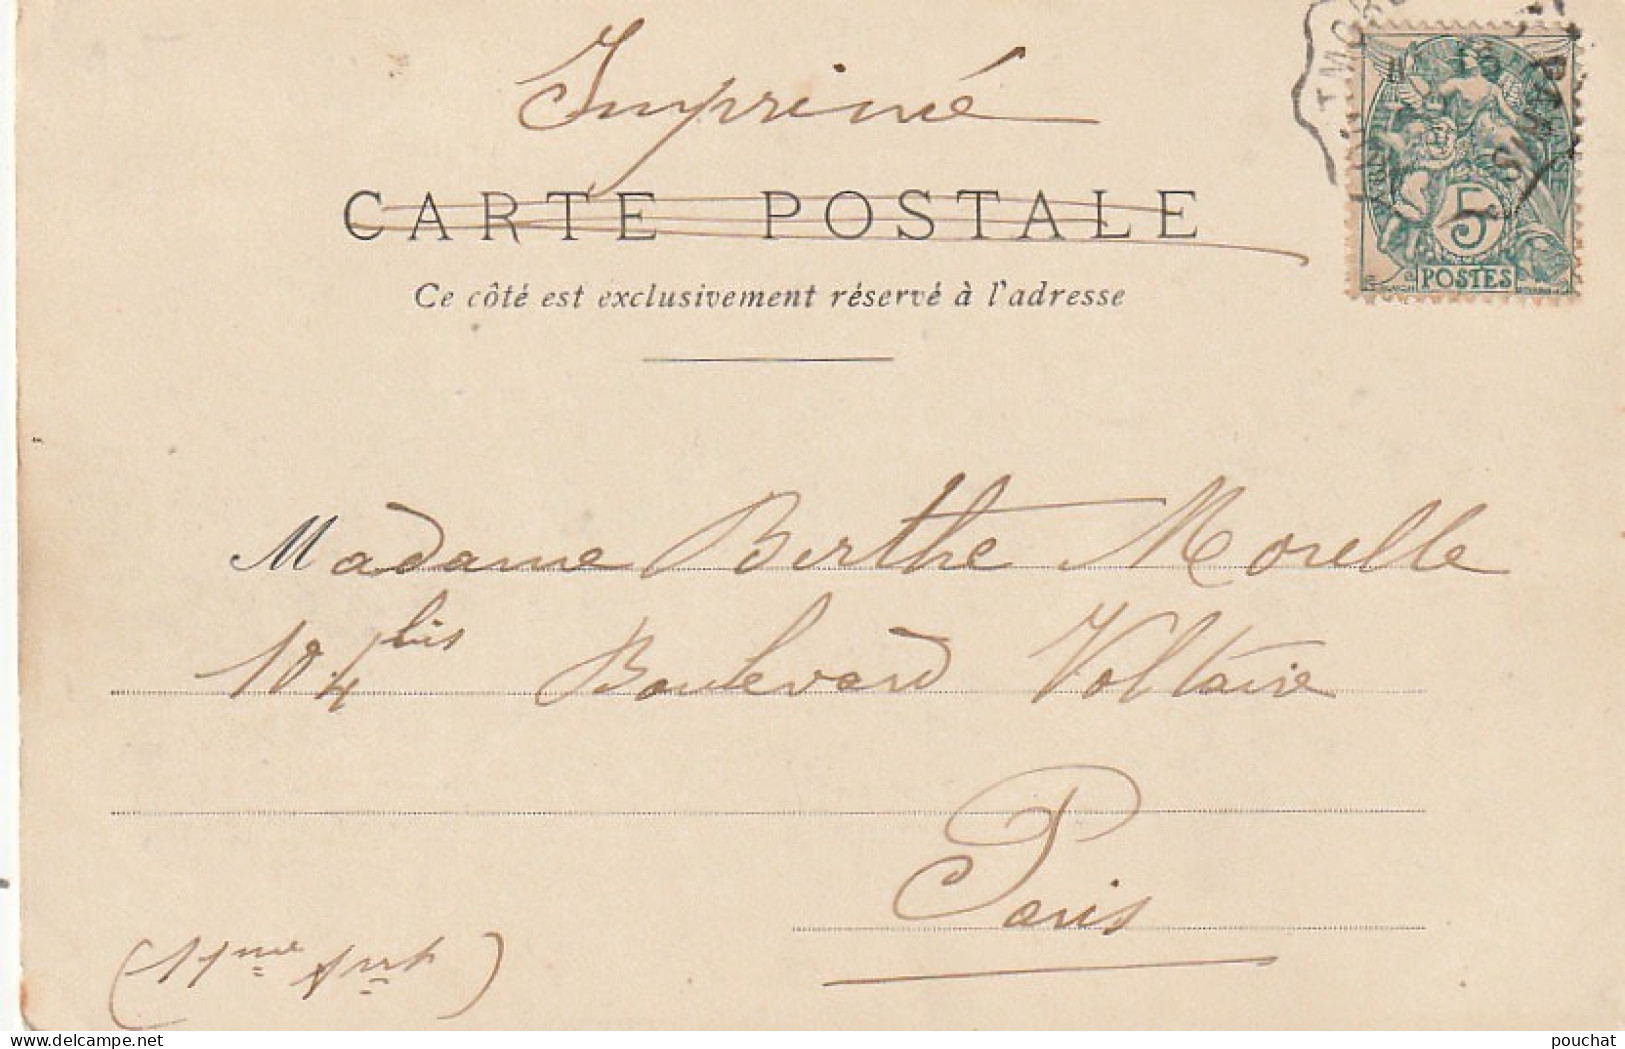 Imprimé
CARTE POSTALE
Ce côté est exclusivement réservé à l'adresse
5
POSTES
PARIS
Madame Berthe Morelle
104 bis Boulevard Voltaire
Paris
(11me Arrt)
www.delcampe.net
pouchat